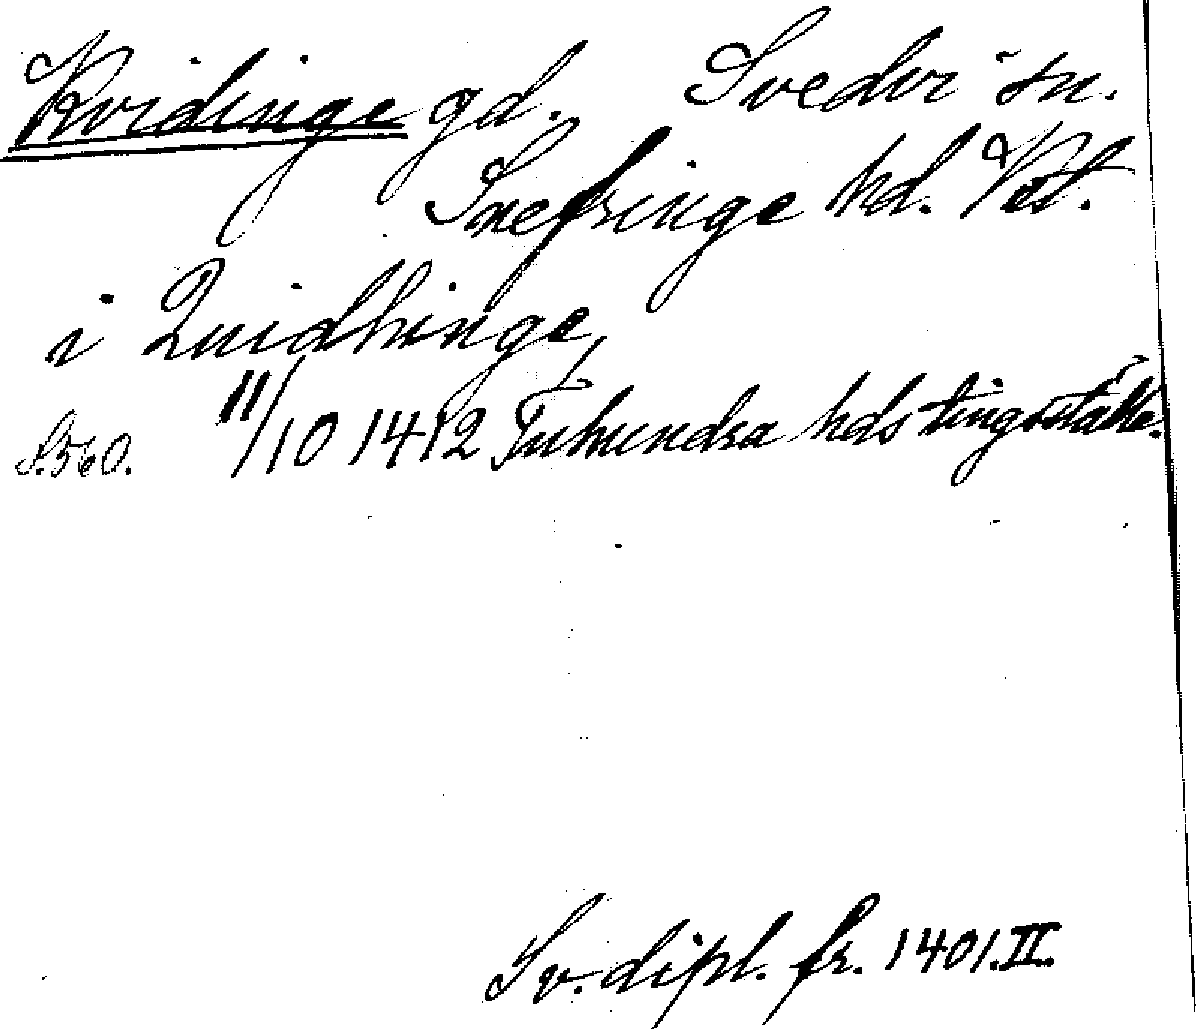 Kvidinge gd. Svedvi sn.
Snefringe hd. Vstl.
i Quidhinge
S. 560. 11/10 1412 Tuhundra hds tingsställe.
Sv. dipl. fr. 1401. II.